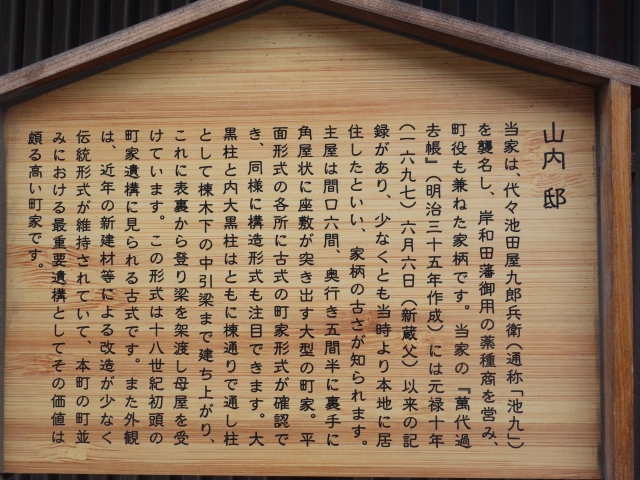 山内 邸
当家は、代々池田屋九郎兵衛（通称「池九」）
を襲名し、岸和田藩御用の薬種商を営み、
町役も兼ねた家柄です。当家の『萬代過
去帳』（明治三十五年作成）には元禄十年
（一六九七）六月六日（新蔵父）以来の記
録があり、少なくとも当時より本地に居
住したといい、家柄の古さが知られます。
主屋は間口六間、奥行き五間半に裏手に
角屋状に座敷が突き出す大型の町家。平
面形式の各所に古式の町家形式が確認で
き、同様に構造形式も注目できます。大
黒柱と内大黒柱はともに棟通りで通し柱
として棟木下の中引梁まで建ち上がり、
これに表裏から登り梁を架渡し母屋を受
けています。この形式は十八世紀初頭の
町家遺構に見られる古式です。また外観
は、近年の新建材等による改造が少なく
伝統形式が維持されていて、本町の町並
みにおける最重要遺構としてその価値は
頗る高い町家です。